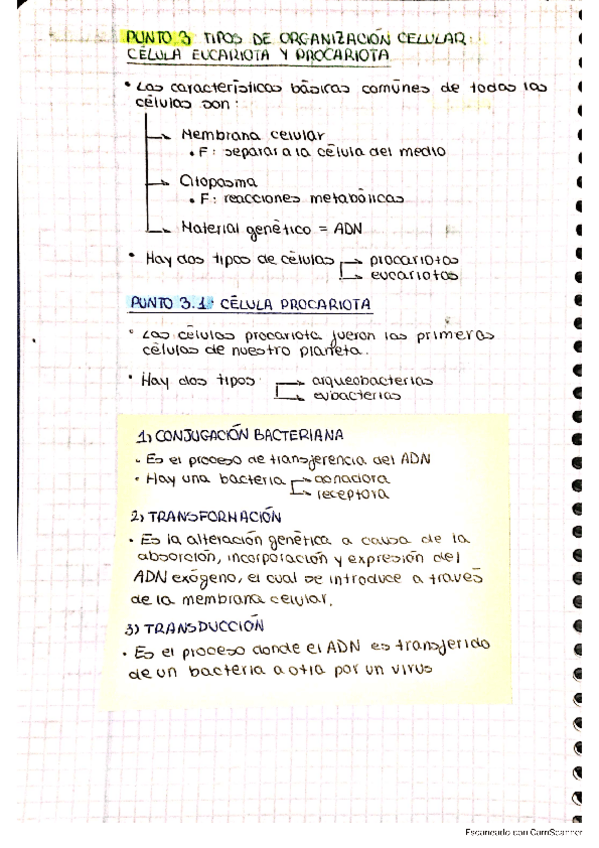 PUNTO 3 TIPOS DE ORGANIZACIÓN CELULAR:
CÉLULA EUCARIOTA Y PROCARIOTA
• Las características básicas comunes de todas las
células son:
→ Membrana celular
• F: separar a la célula del medio
→ Citopasma
• F: reacciones metabólicas
→ Material genético = ADN
• Hay dos tipos de células → procariotas
→ eucariotas
PUNTO 3.1: CÉLULA PROCARIOTA
• Las células procariota fueron las primeras
células de nuestro planeta.
• Hay dos tipos → arqueobacterias
→ eubacterias
1) CONJUGACIÓN BACTERIANA
• Es el proceso de transferencia del ADN
• Hay una bacteria → donadora
→ receptora
2) TRANSFORMACIÓN
• Es la alteración genética a causa de la
absorción, incorporación y expresión del
ADN exógeno, el cual se introduce a través
de la membrana celular.
3) TRANSDUCCIÓN
• Es el proceso donde el ADN es transferido
de un bacteria a otra por un virus
Escaneado con CamScanner